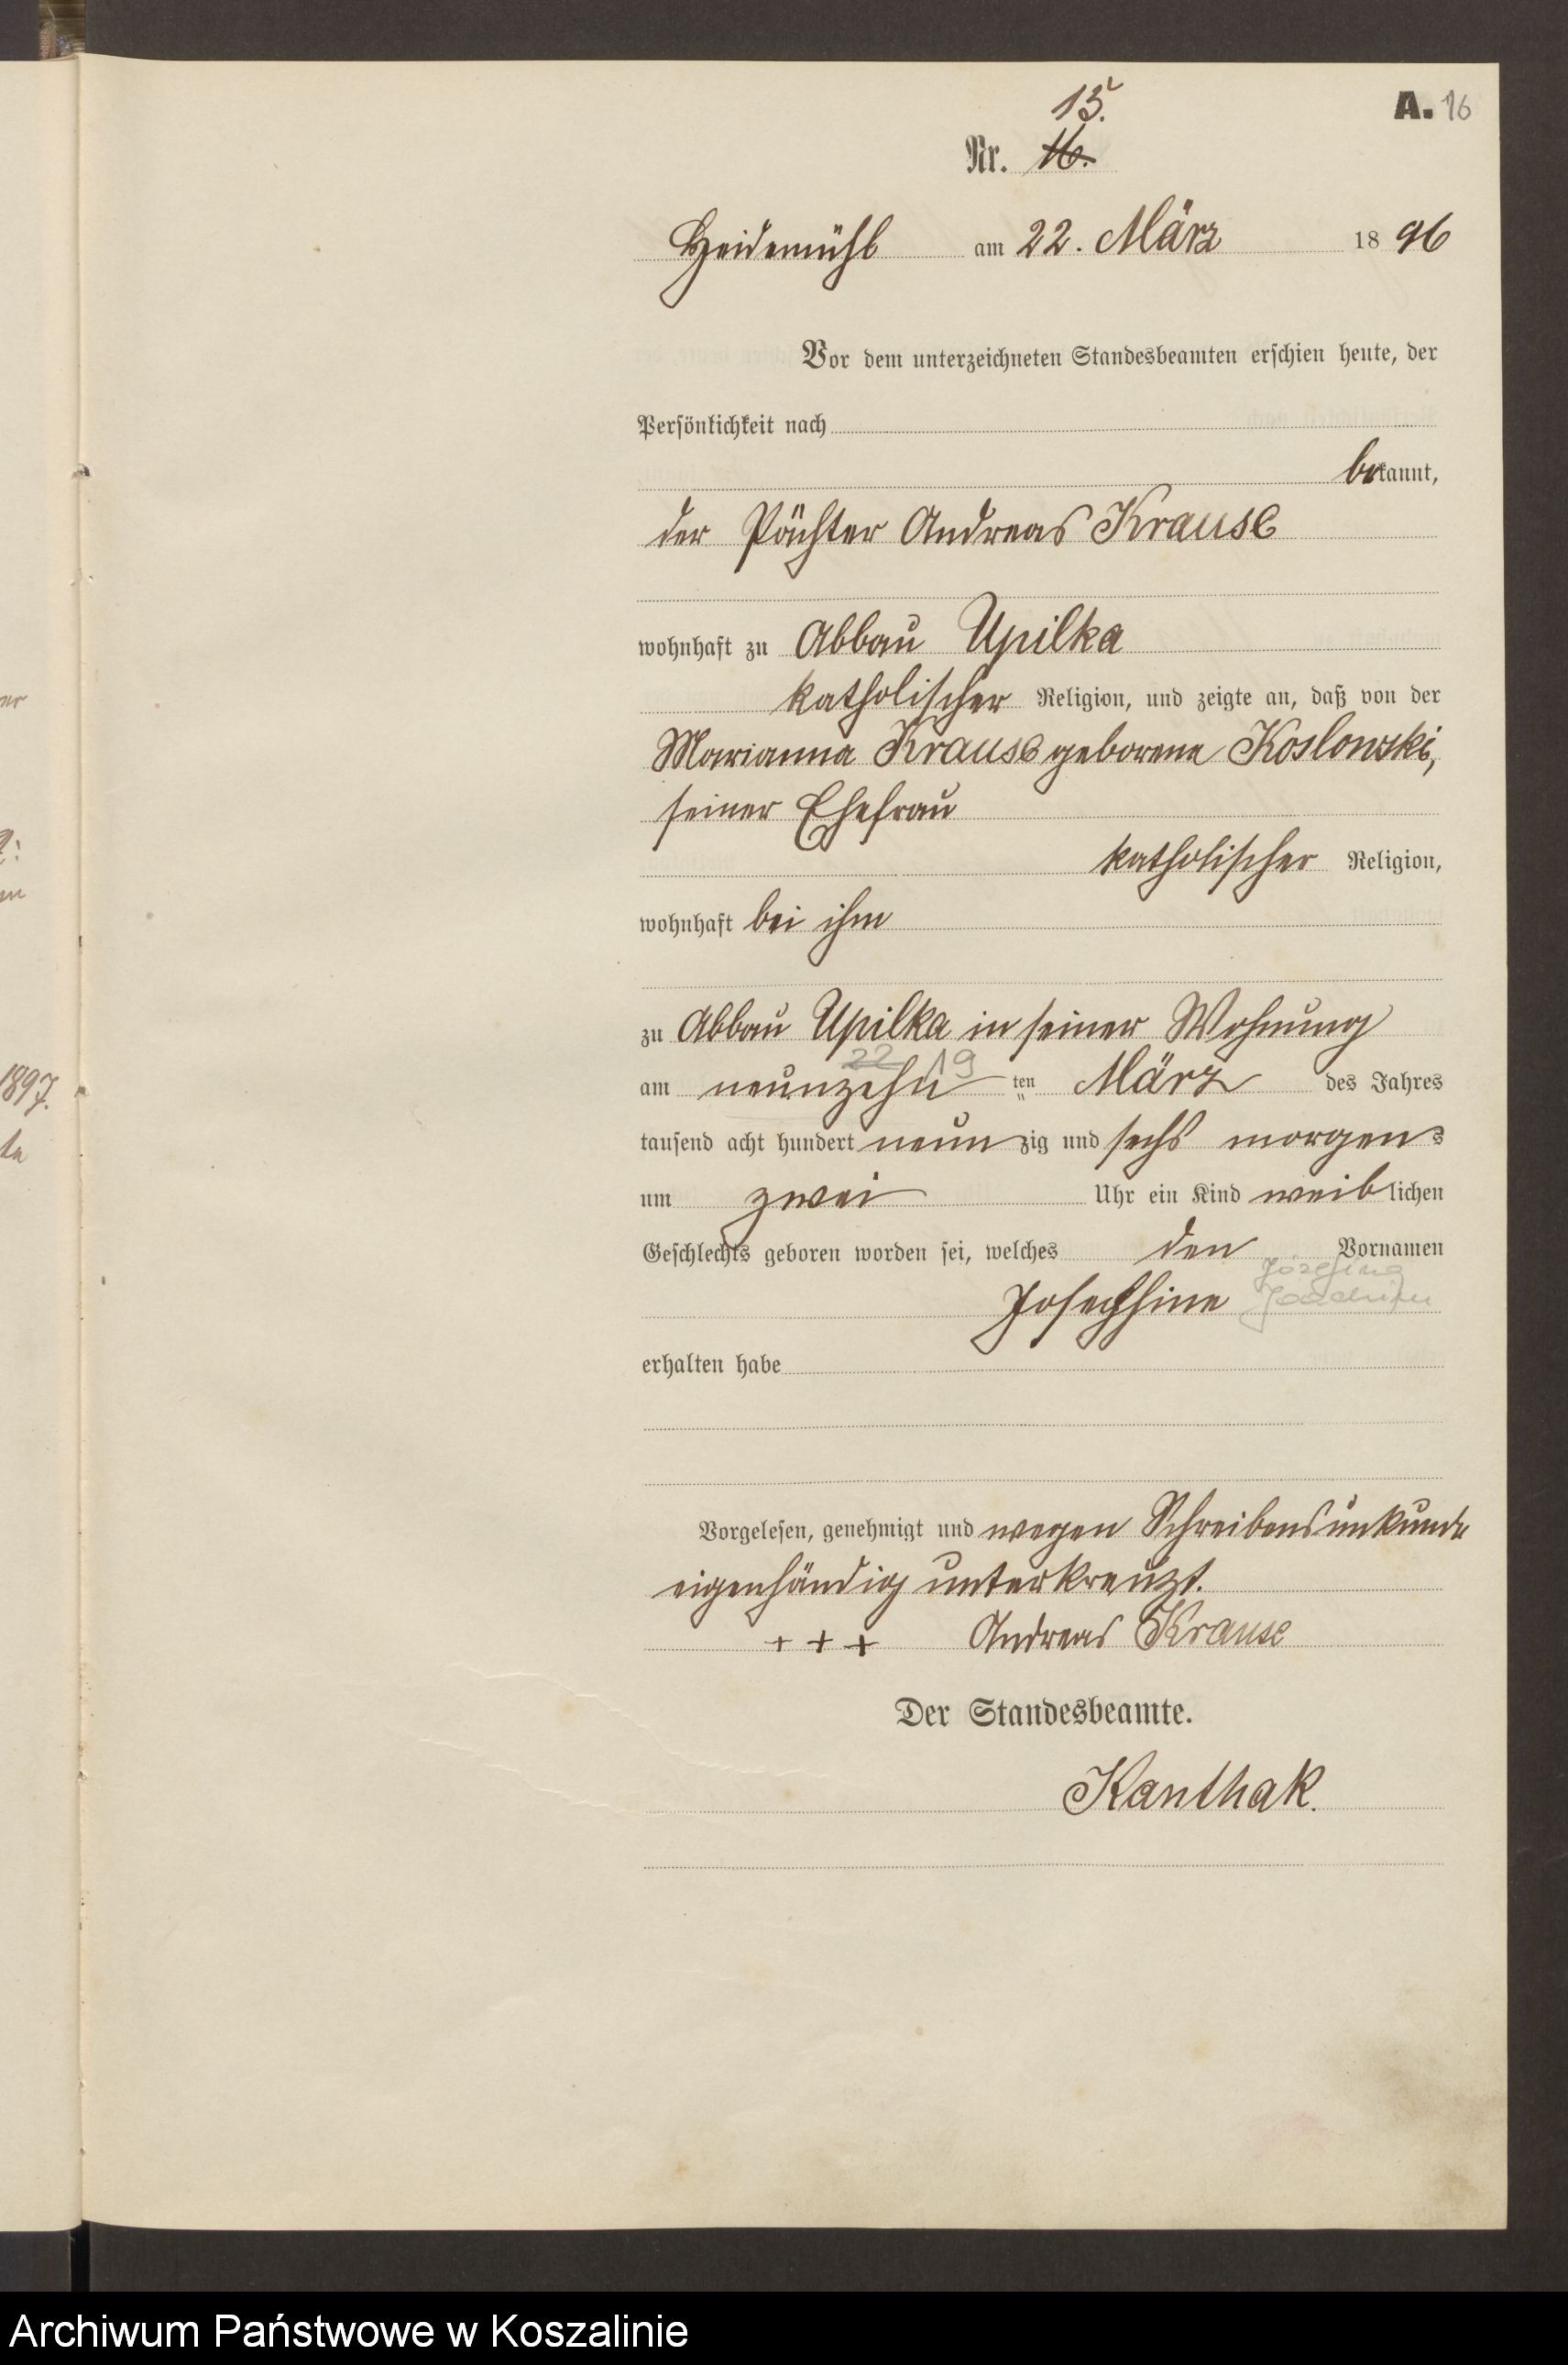 15.
A. 16
Nr. 16.
Heidemühl am 22. März 1896
Vor dem unterzeichneten Standesbeamten erschien heute, der
Persönlichkeit nach
bekannt,
der Pächter Andreas Krause
wohnhaft zu Abbau Upilka
katholischer Religion, und zeigte an, daß von der
Marianna Krause geborene Koslowski,
seiner Ehefrau
katholischer Religion,
wohnhaft bei ihm
zu Abbau Upilka in seiner Wohnung
22 19
am neunzehn ten März des Jahres
tausend acht hundert neunzig und sechs morgens
um zwei Uhr ein Kind weiblichen
Geschlechts geboren worden sei, welches den Vornamen
Josephine
erhalten habe
Vorgelesen, genehmigt und wegen Schreibensunkunde
eigenhändig unterkreuzt.
+ + + Andreas Krause
Der Standesbeamte.
Kanthak.
1897.
Archiwum Państwowe w Koszalinie